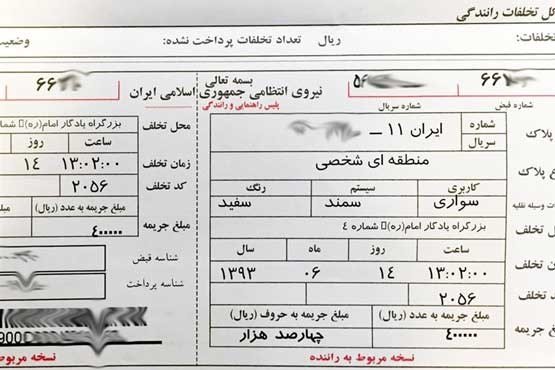 کل تخلفات رانندگی
تخلفات: ریال تعداد تخلفات پرداخت نشده: وضعیت
بسمه تعالی
نیروی انتظامی جمهوری اسلامی ایران
پلیس راهنمایی و رانندگی
۶۶
شماره قبض
۵۶
شماره سریال
پلاک
شماره
سریال
ایران ۱۱ ــ
ع پلاک
منطقه ای شخصی
ت وسیله نقلیه
کاربری سیستم رنگ
سواری سمند سفید
ل تخلف
بزرگراه یادگار امام(ره)▯ شماره ۴
ن تخلف
ساعت روز ماه سال
۱۳:۰۲:۰۰ ۱۴ ۰۶ ۱۳۹۳
د تخلف
۲۰۵۶
جریمه
مبلغ جریمه به عدد (ریال) مبلغ جریمه به حروف (ریال)
۴۰۰۰۰۰ چهارصد هزار
نسخه مربوط به راننده
۶۶
محل تخلف
بزرگراه یادگار امام(ره)▯ ش
زمان تخلف
ساعت روز
۱۳:۰۲:۰۰ ۱۴
کد تخلف
۲۰۵۶
مبلغ جریمه
مبلغ جریمه به عدد (ریال)
۴۰۰۰۰۰
شناسه قبض
شناسه پرداخت
نسخه مربوط